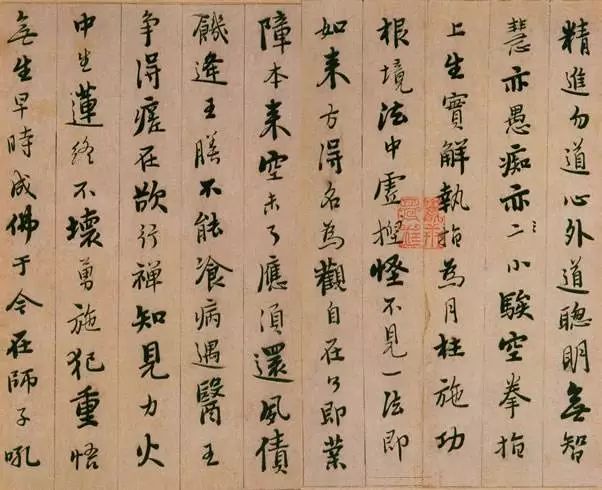 精進勿道心外道聰明無智
慧亦愚痴亦二小騃空拳指
上生實解執指為月枉施功
根境法中虛捏怪不見一法即
如来方得名為觀自在了即業
障本来空未了應須還夙債
饑逢王膳不能飡病遇醫王
爭得瘥在欲行禪知見力火
中生蓮終不壞勇施犯重悟
無生早時成佛于今在師子吼